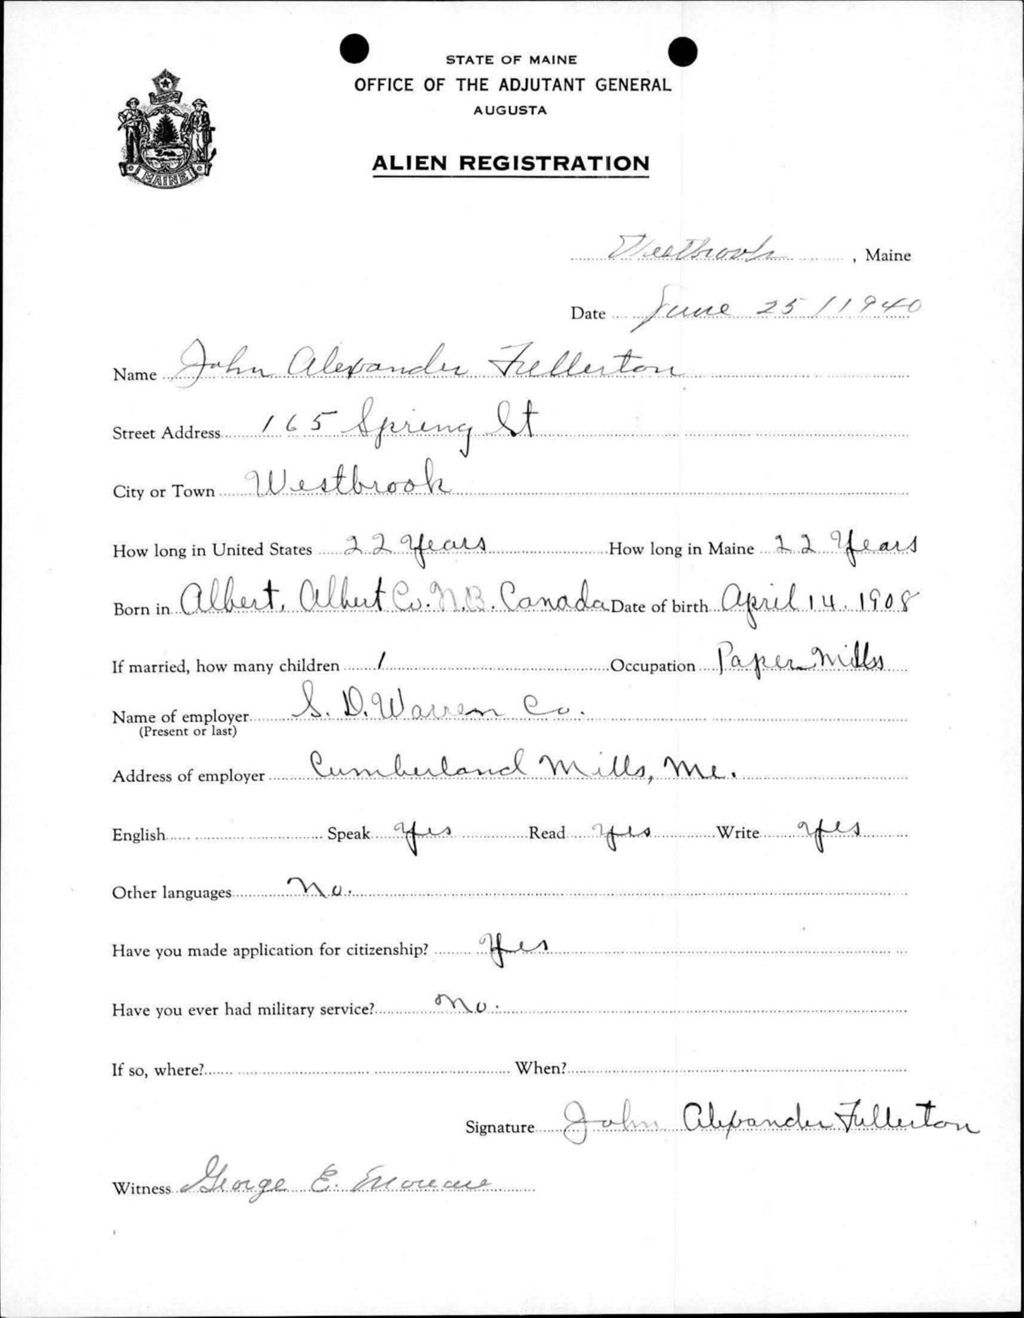 STATE OF MAINE
OFFICE OF THE ADJUTANT GENERAL
AUGUSTA
ALIEN REGISTRATION
MAINE
Westbrook, Maine
Date June 25 / 1940
Name John Alexander Fullerton
Street Address 165 Spring St
City or Town Westbrook
How long in United States 22 Years How long in Maine 22 Years
Born in Albert, Albert Co. N.B. Canada Date of birth April 14, 1908
If married, how many children 1 Occupation Paper Mills
Name of employer S. D. Warren Co.
(Present or last)
Address of employer Cumberland Mills, Me.
English Speak Yes Read Yes Write Yes
Other languages No.
Have you made application for citizenship? Yes
Have you ever had military service? No.
If so, where? When?
Signature John Alexander Fullerton
Witness George E.